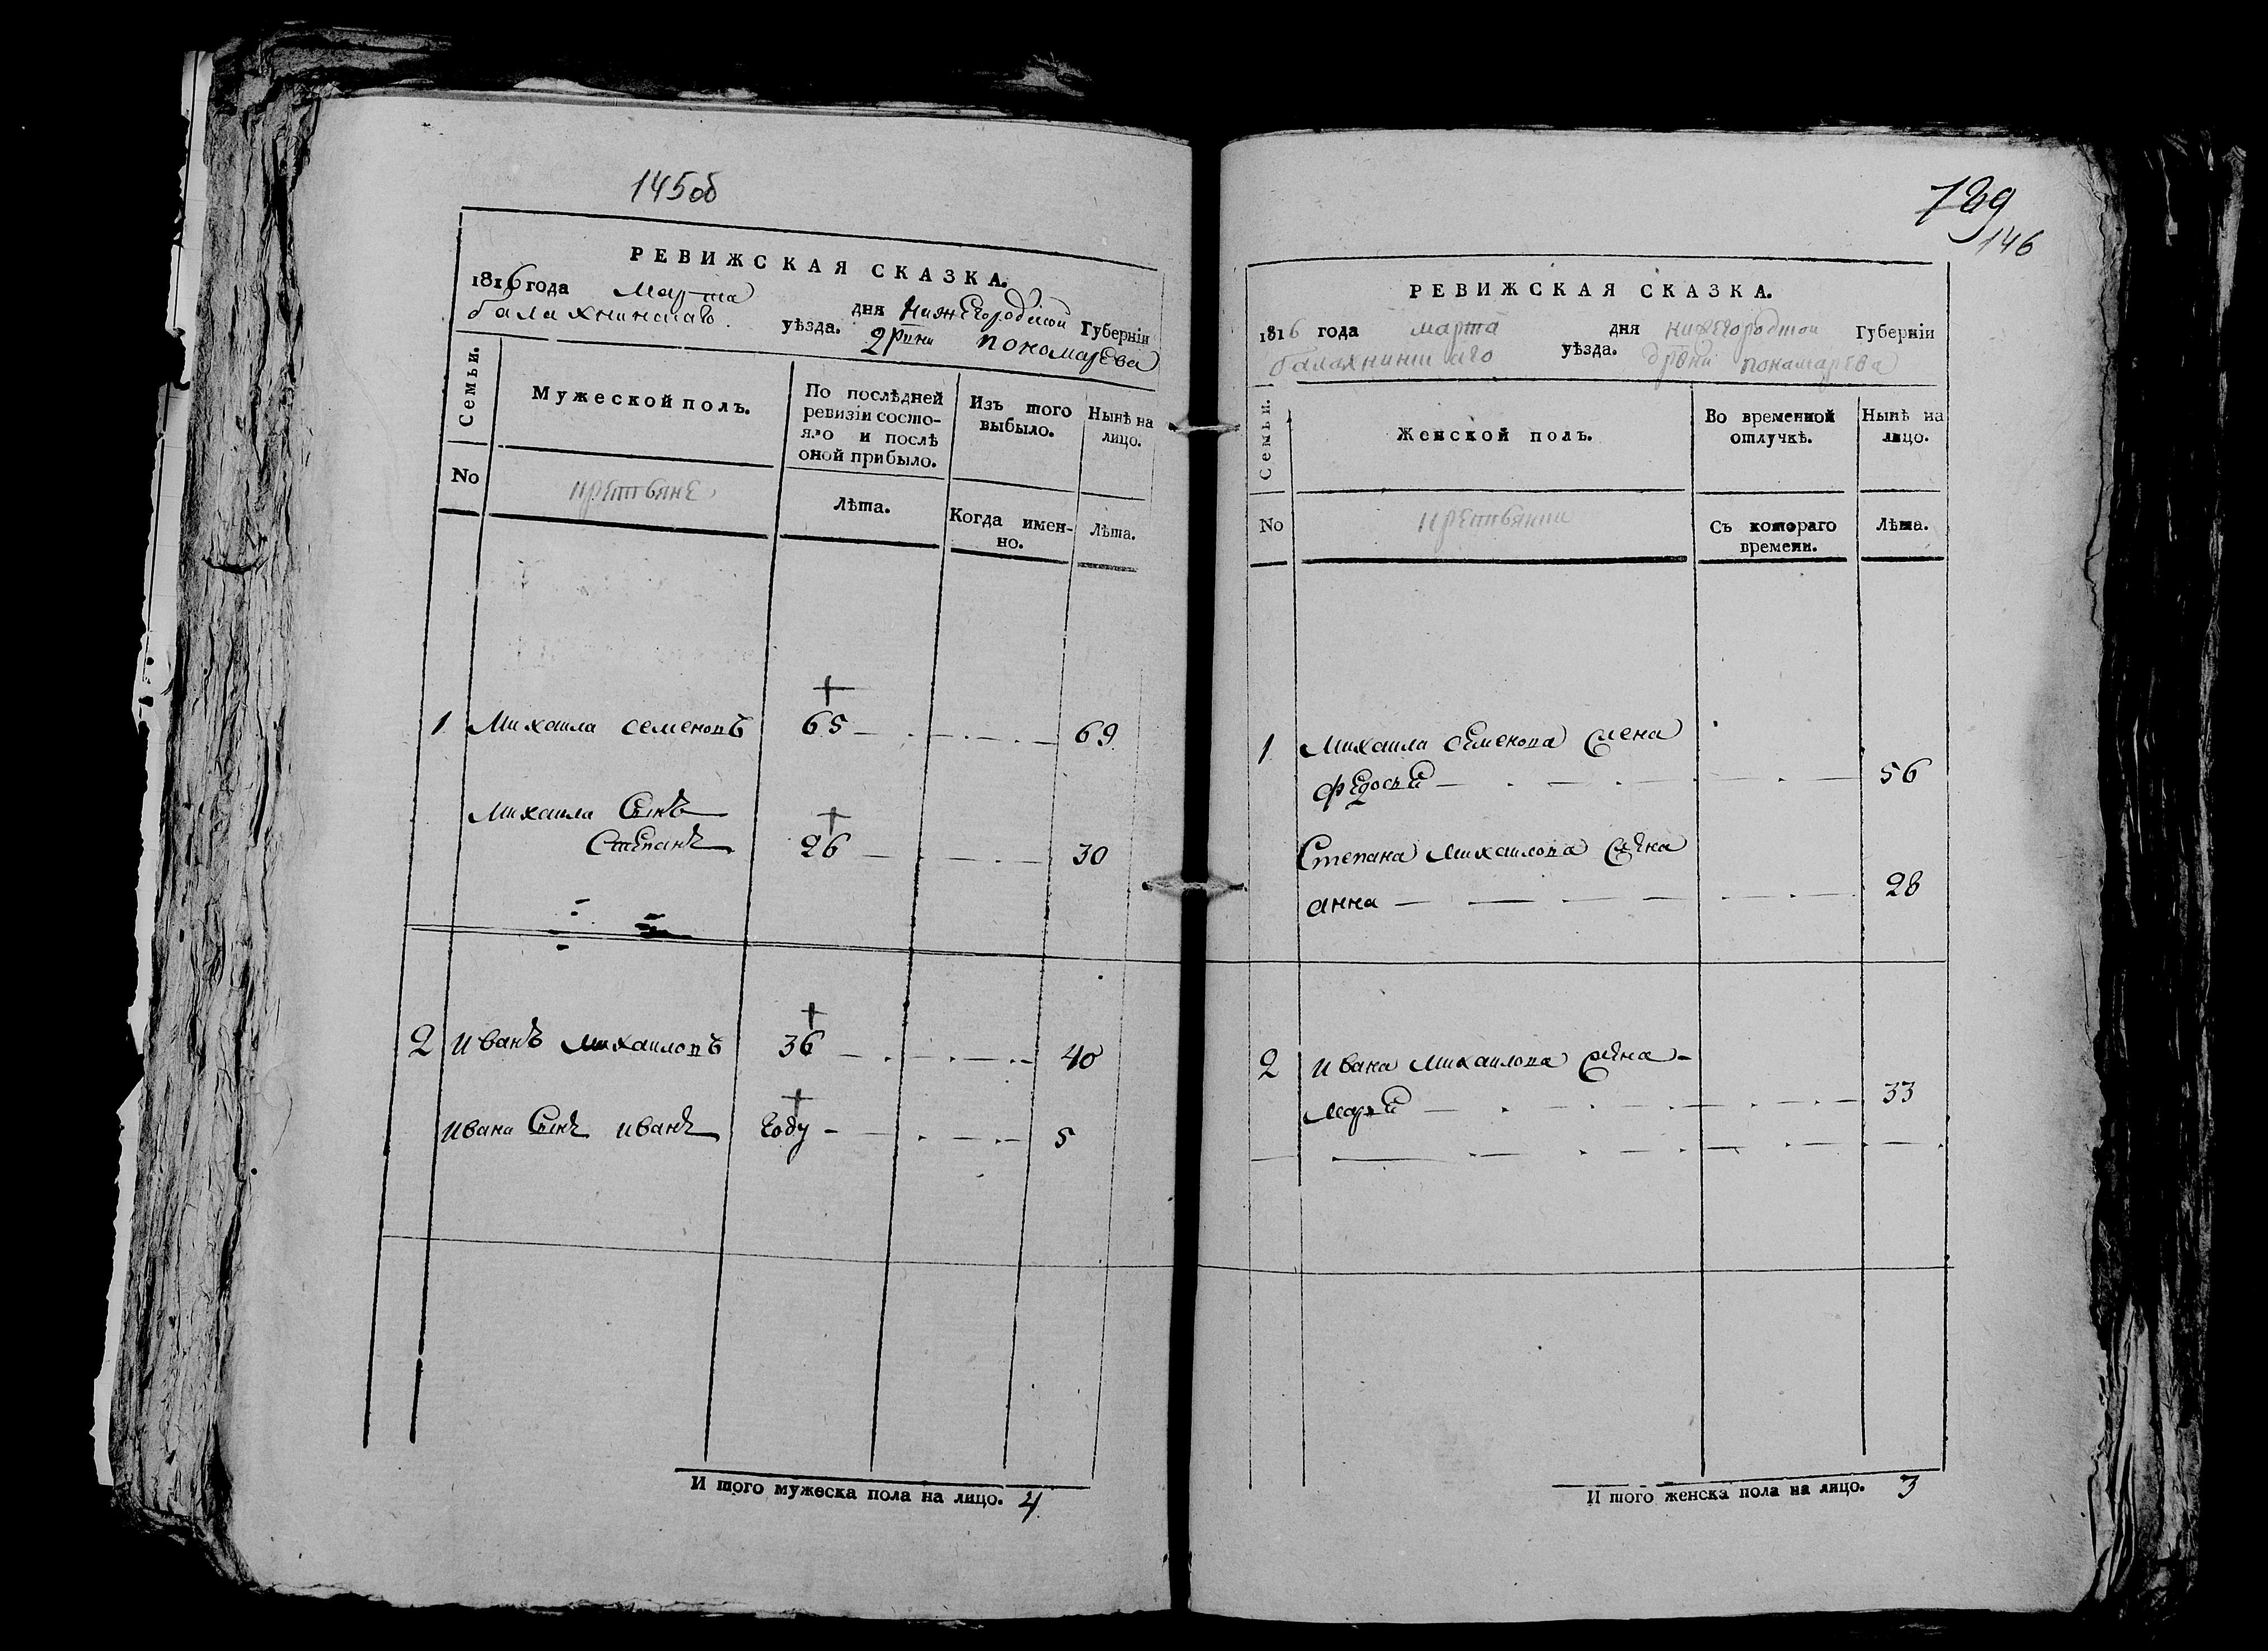 145об
РЕВИЖСКАЯ СКАЗКА.
1816 года марта дня Нижегородской Губернiи
балахнинскаго уѣзда. дрвни пономарева
Семьи.
Мужеской полъ.
По послѣдней
ревизiи состо-
яло и послѣ
оной прибыло.
Изъ того
выбыло.
Нынѣ на
лицо.
No
крестьяне
Лѣта.
Когда имен-
но.
Лѣта.
1 Михаила семеновъ 65 69
Михаила Сынъ
Степанъ 26 30
2 иванъ михаиловъ 36 40
ивана Сынъ иванъ году 5
И того мужеска пола на лицо. 4
739
146
РЕВИЖСКАЯ СКАЗКА.
1816 года марта дня нижегородской Губернiи
балахнинскаго уѣзда. дрвни пономарева
Семьи.
Женской полъ.
Во временной
отлучкѣ.
Нынѣ на
лицо.
No
крестьянки
Съ котораго
времени.
Лѣта.
1 Михаила семенова жена
федосья 56
Степана михаилова жена
анна 28
2 ивана михаилова жена
марья 33
И того женска пола на лицо. 3